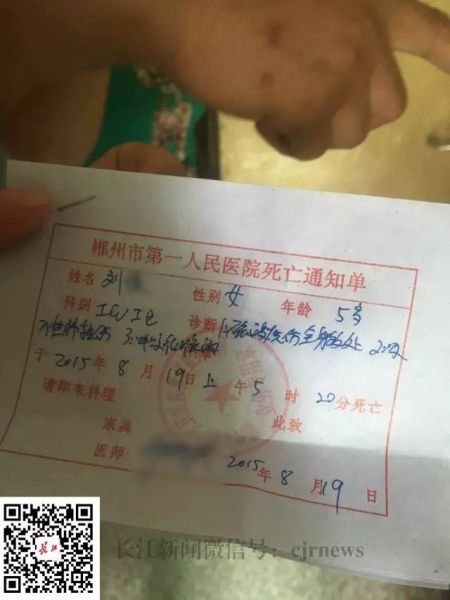 郴州市第一人民医院死亡通知单
姓名 刘 性别 女 年龄 5岁
科别 诊断 烧伤全身多处 2.吸
入性肺损伤 3.呼吸
于 2015年 8 月 19日 上午 5 时 20分死亡
请即来料理
此致
家属
医师
2015年 8 月 19 日
长江新闻微信号：cjrnews
长江